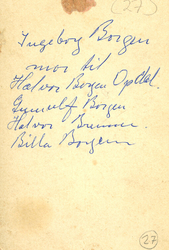 (27)
Ingeborg Borgen
mor til
Halvor Borgen Opdal.
Gunnulf Borgen
Halvor
Billa Borgen
27